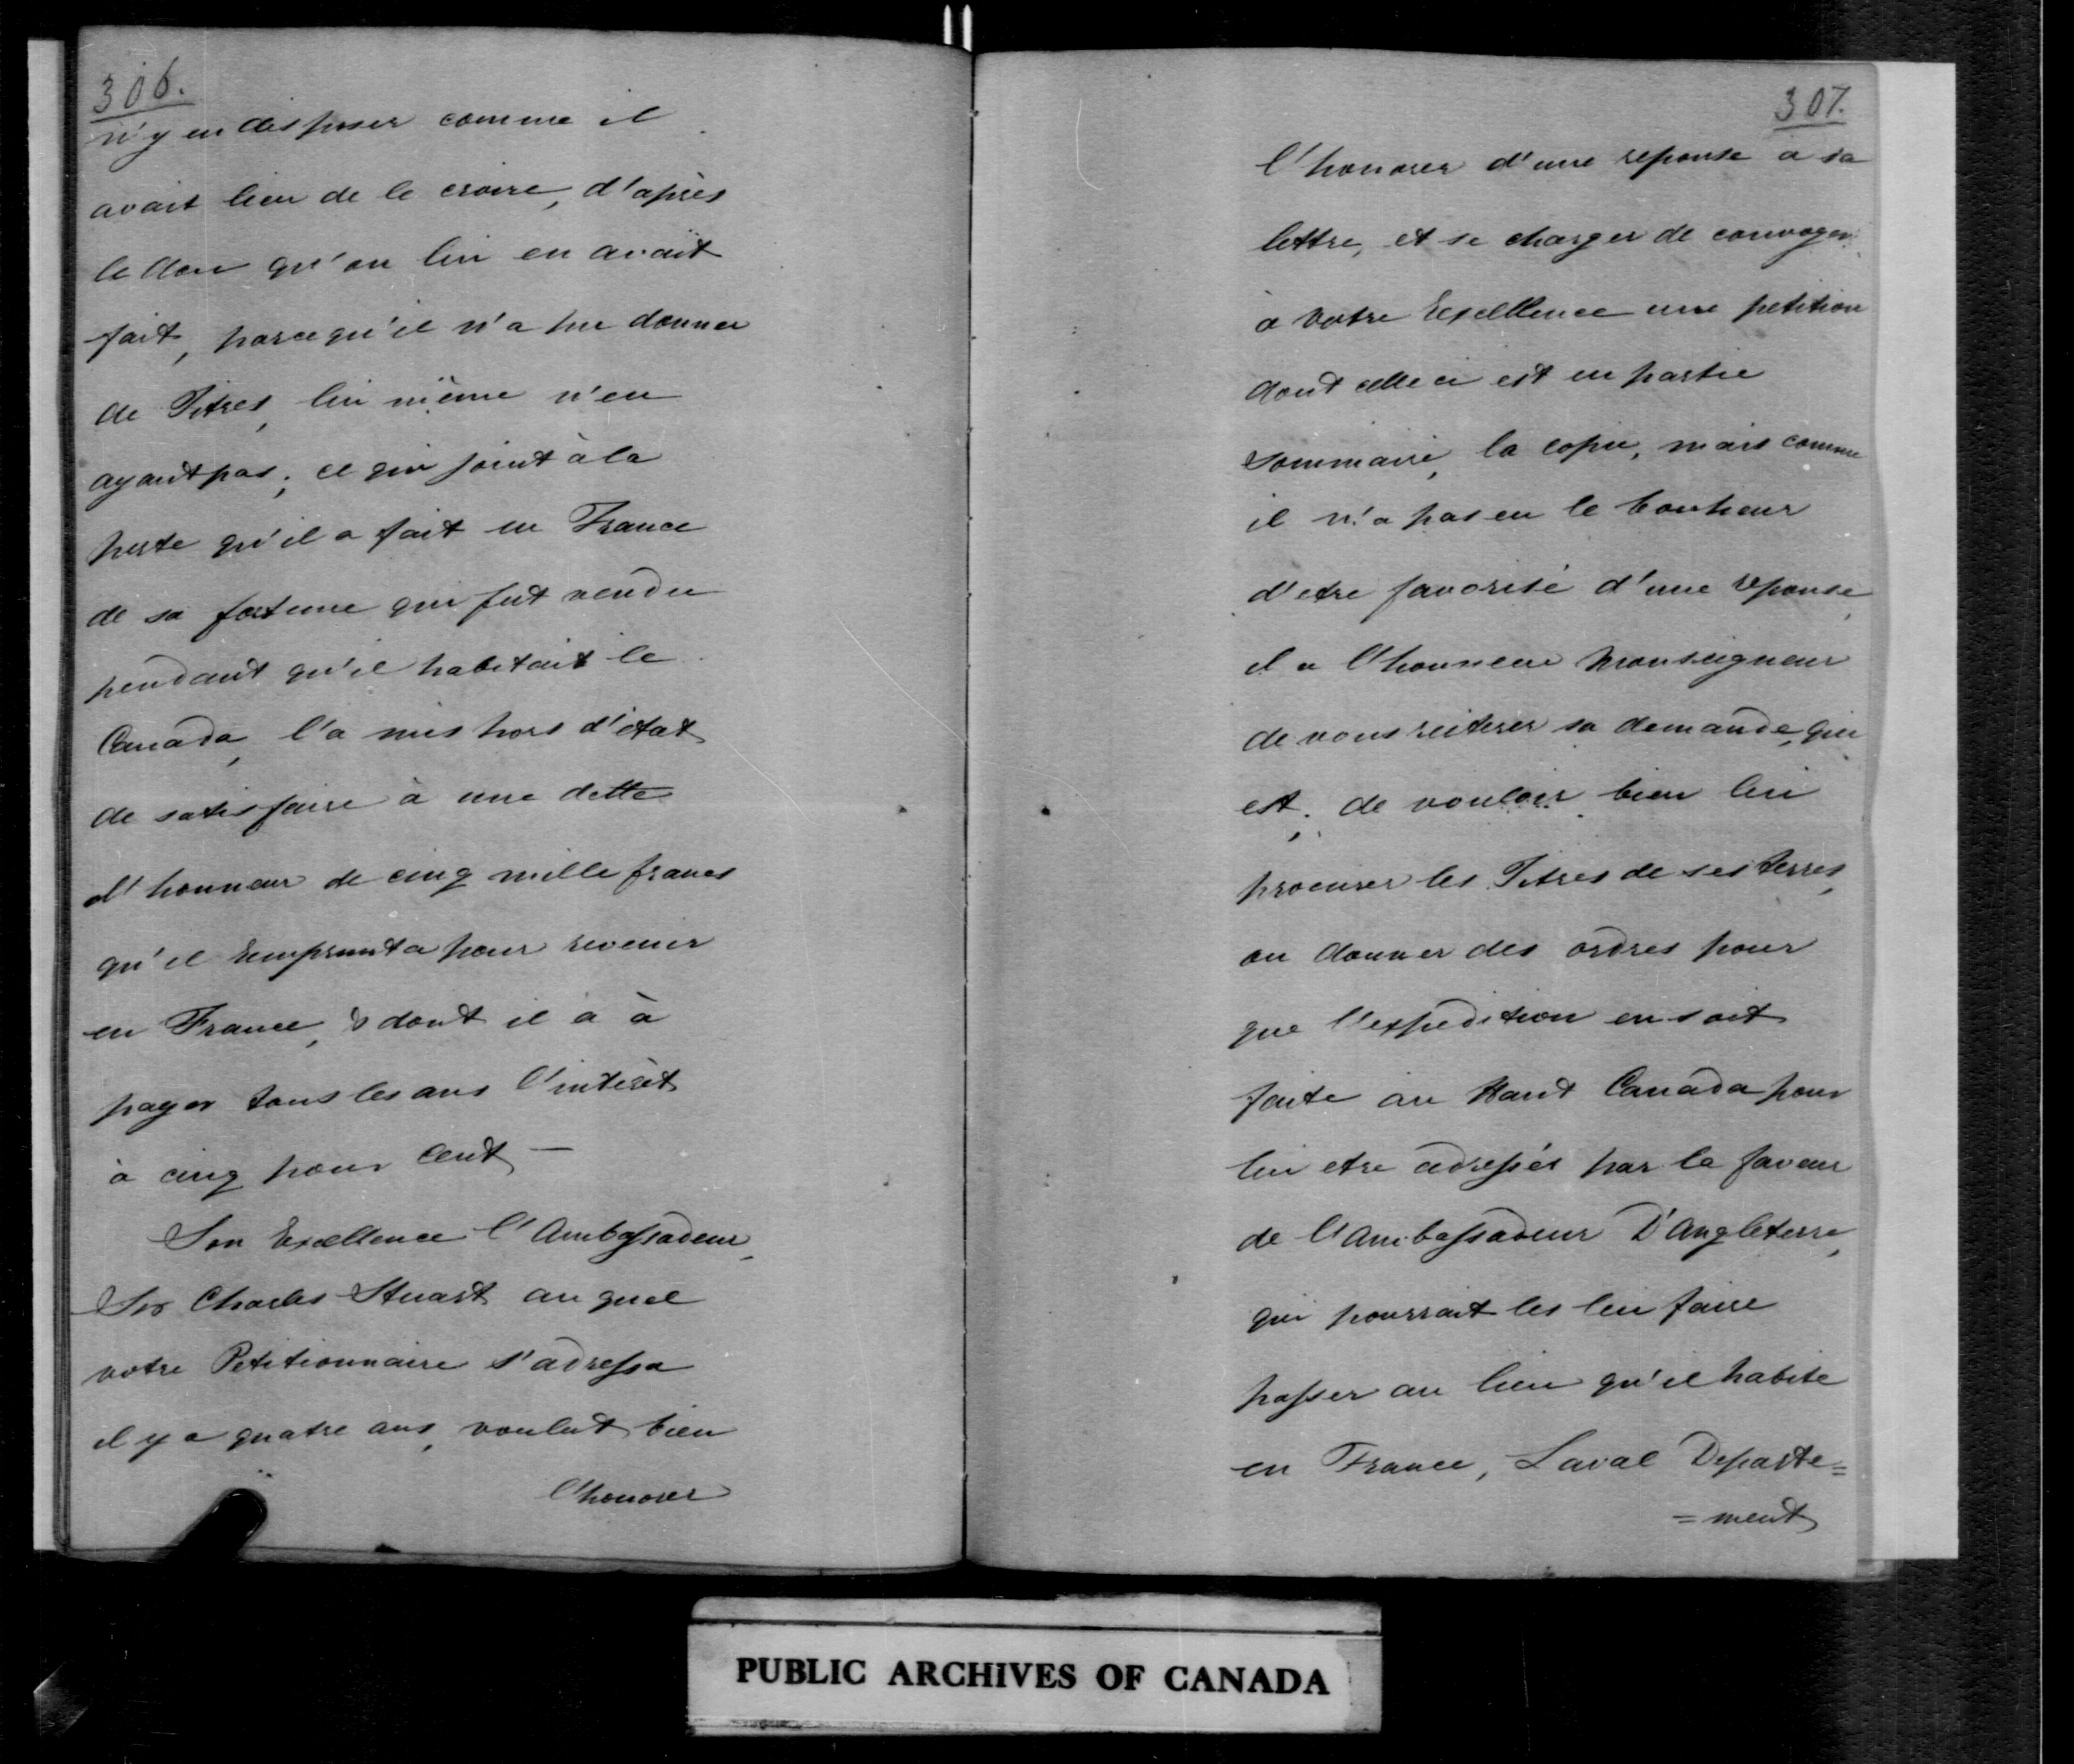 306.
n'y en disposer comme il
avait lieu de le croire, d'après
le don qu'on lui en avait
fait, parcequ'il n'a pu donner
de Titres, lui même n'en
ayant pas; ce qui joint à la
perte qu'il a fait en France
de sa fortune qui fut vendu
pendant qu'il habitait le
Canada, l'a mis hors d'état
de satisfaire à une dette
d'honneur de cinq mille francs
qu'il emprunta pour revenir
en France, & dont il a à
payer tous les ans l'intérèt
à cinq pour Cent —
Son Excellence l'Ambassadeur,
Sir Charles Stuart au quel
votre Petitionnaire s'adressa
il y a quatre ans, voulut bien
l'honorer
307.
l'honorer d'une reponse a sa
lettre, et se charger de convoyer
à votre Excellence une petition
dont celle ci est en partie
sommaire, la copie, mais comme
il n'a pas eu le bonheur
d'etre favorisé d'une reponse,
il a l'honneur Monseigneur
de vous reiterer sa demande, qui
est, de vouloir bien lui
procurer les Titres de ses terres,
ou donner des ordres pour
que l'expedition en soit
faite au Haut Canada pour
lui etre adressés par la faveur
de l'Ambassadeur D'Angleterre,
qui pourrait les lui faire
passer au lieu qu'il habite
en France, Laval Departe=
=ment
PUBLIC ARCHIVES OF CANADA